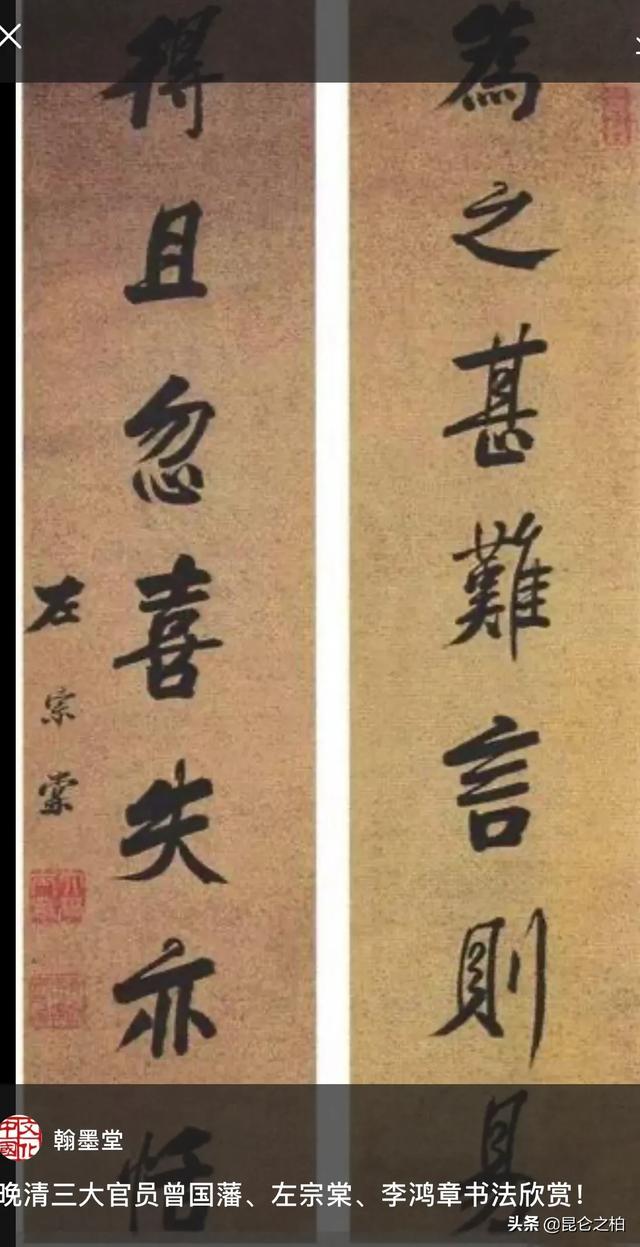 為之甚難言則見
得且忽喜失亦恬
左宗棠
翰墨堂
晚清三大官员曾国藩、左宗棠、李鸿章书法欣赏！
头条 @昆仑之柏